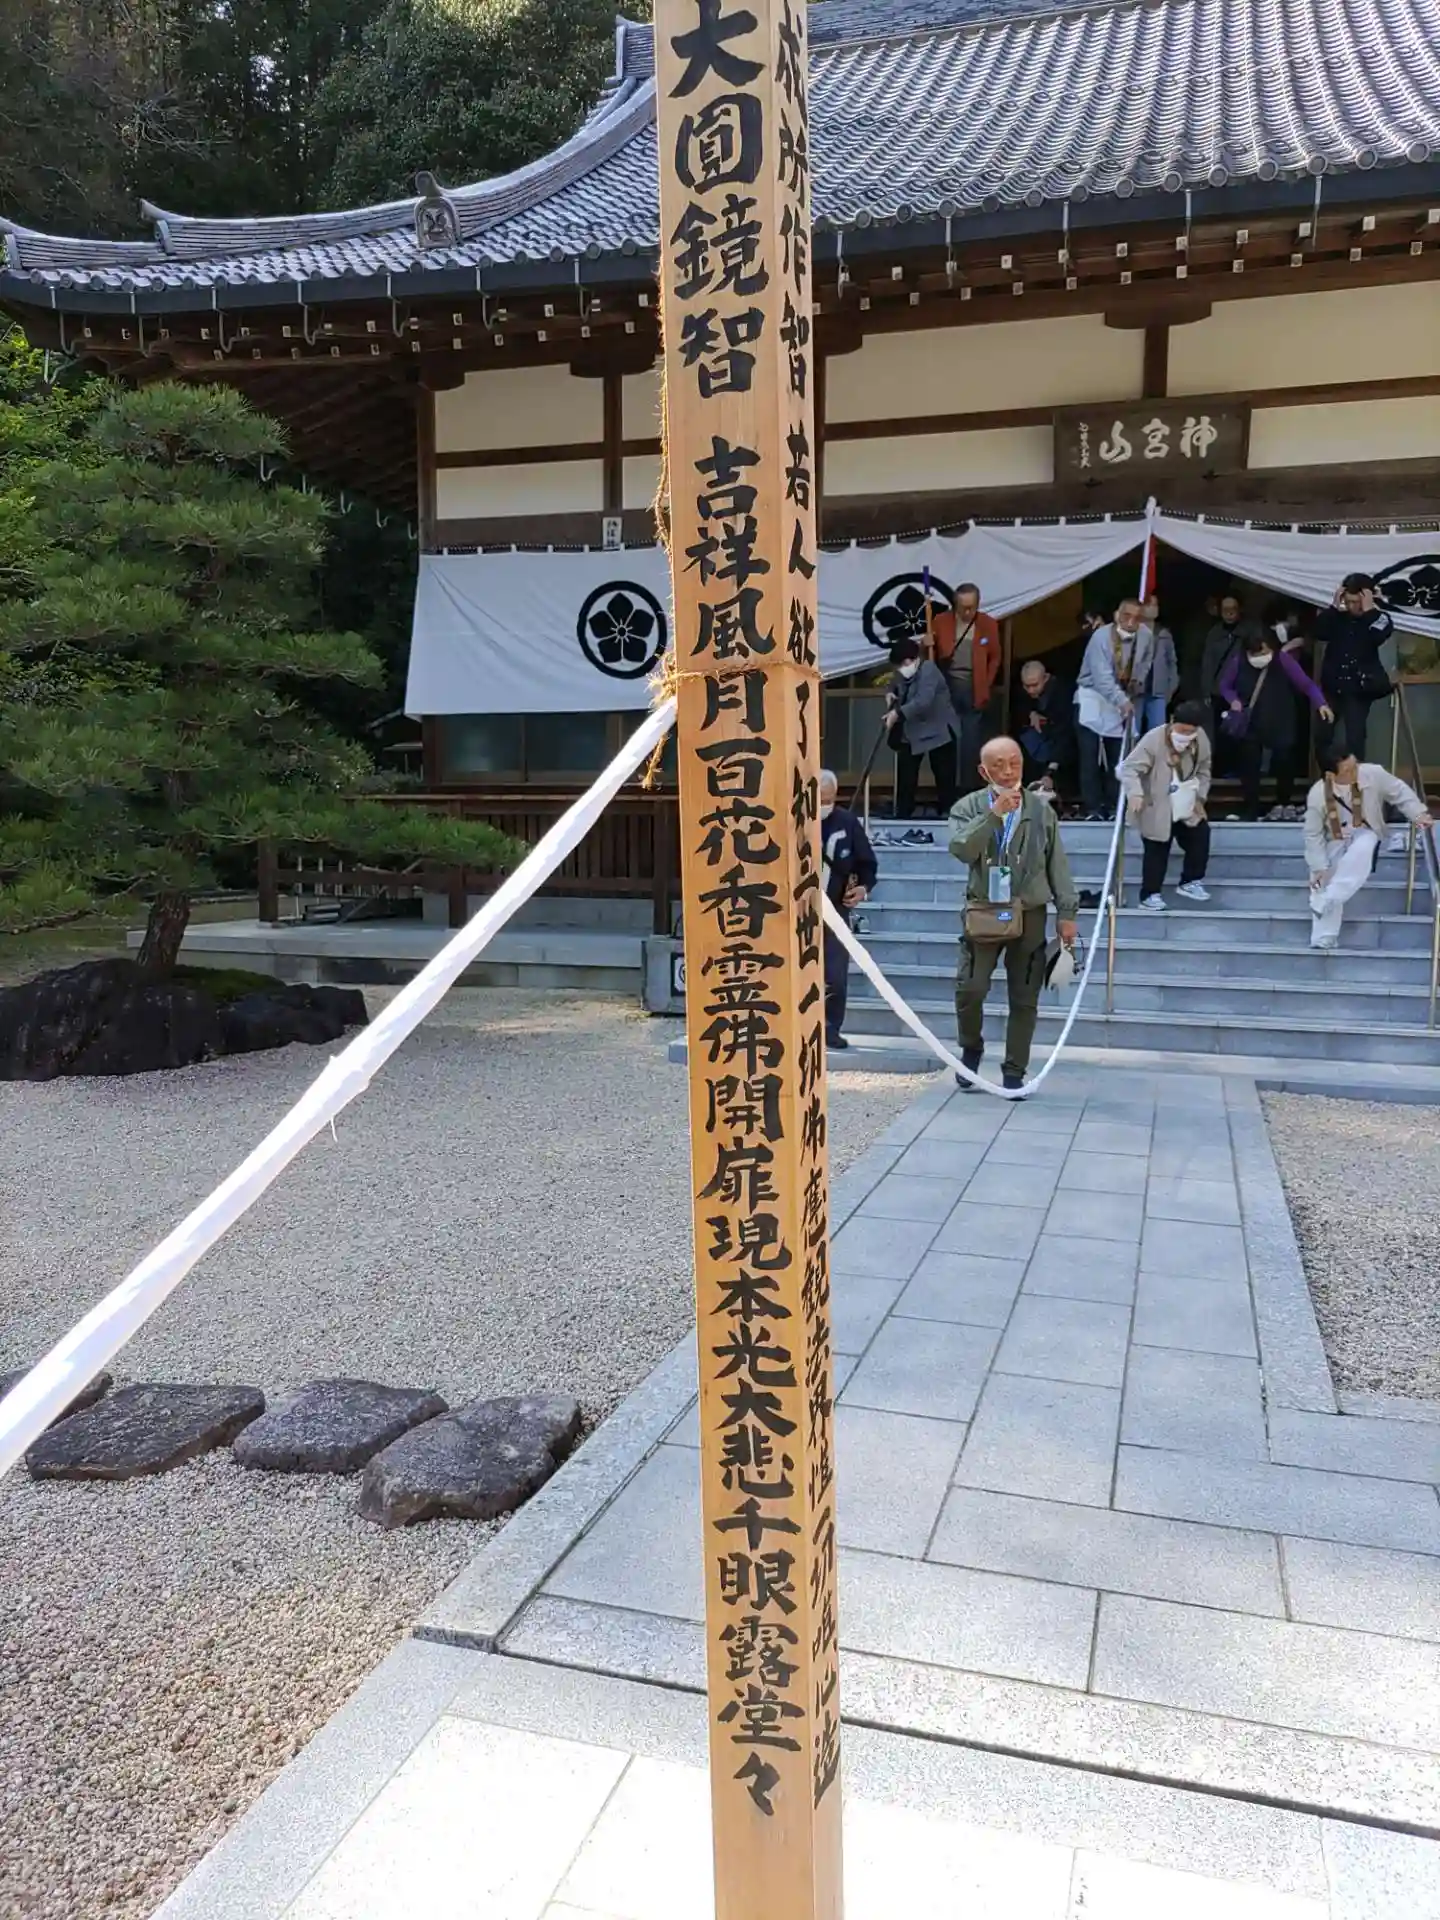 大圓鏡智 吉祥風月百花香霊佛開扉現本光大悲千眼露堂々
成所作智 若人欲了知三世一切佛應観法界性一切唯心造
神宮山